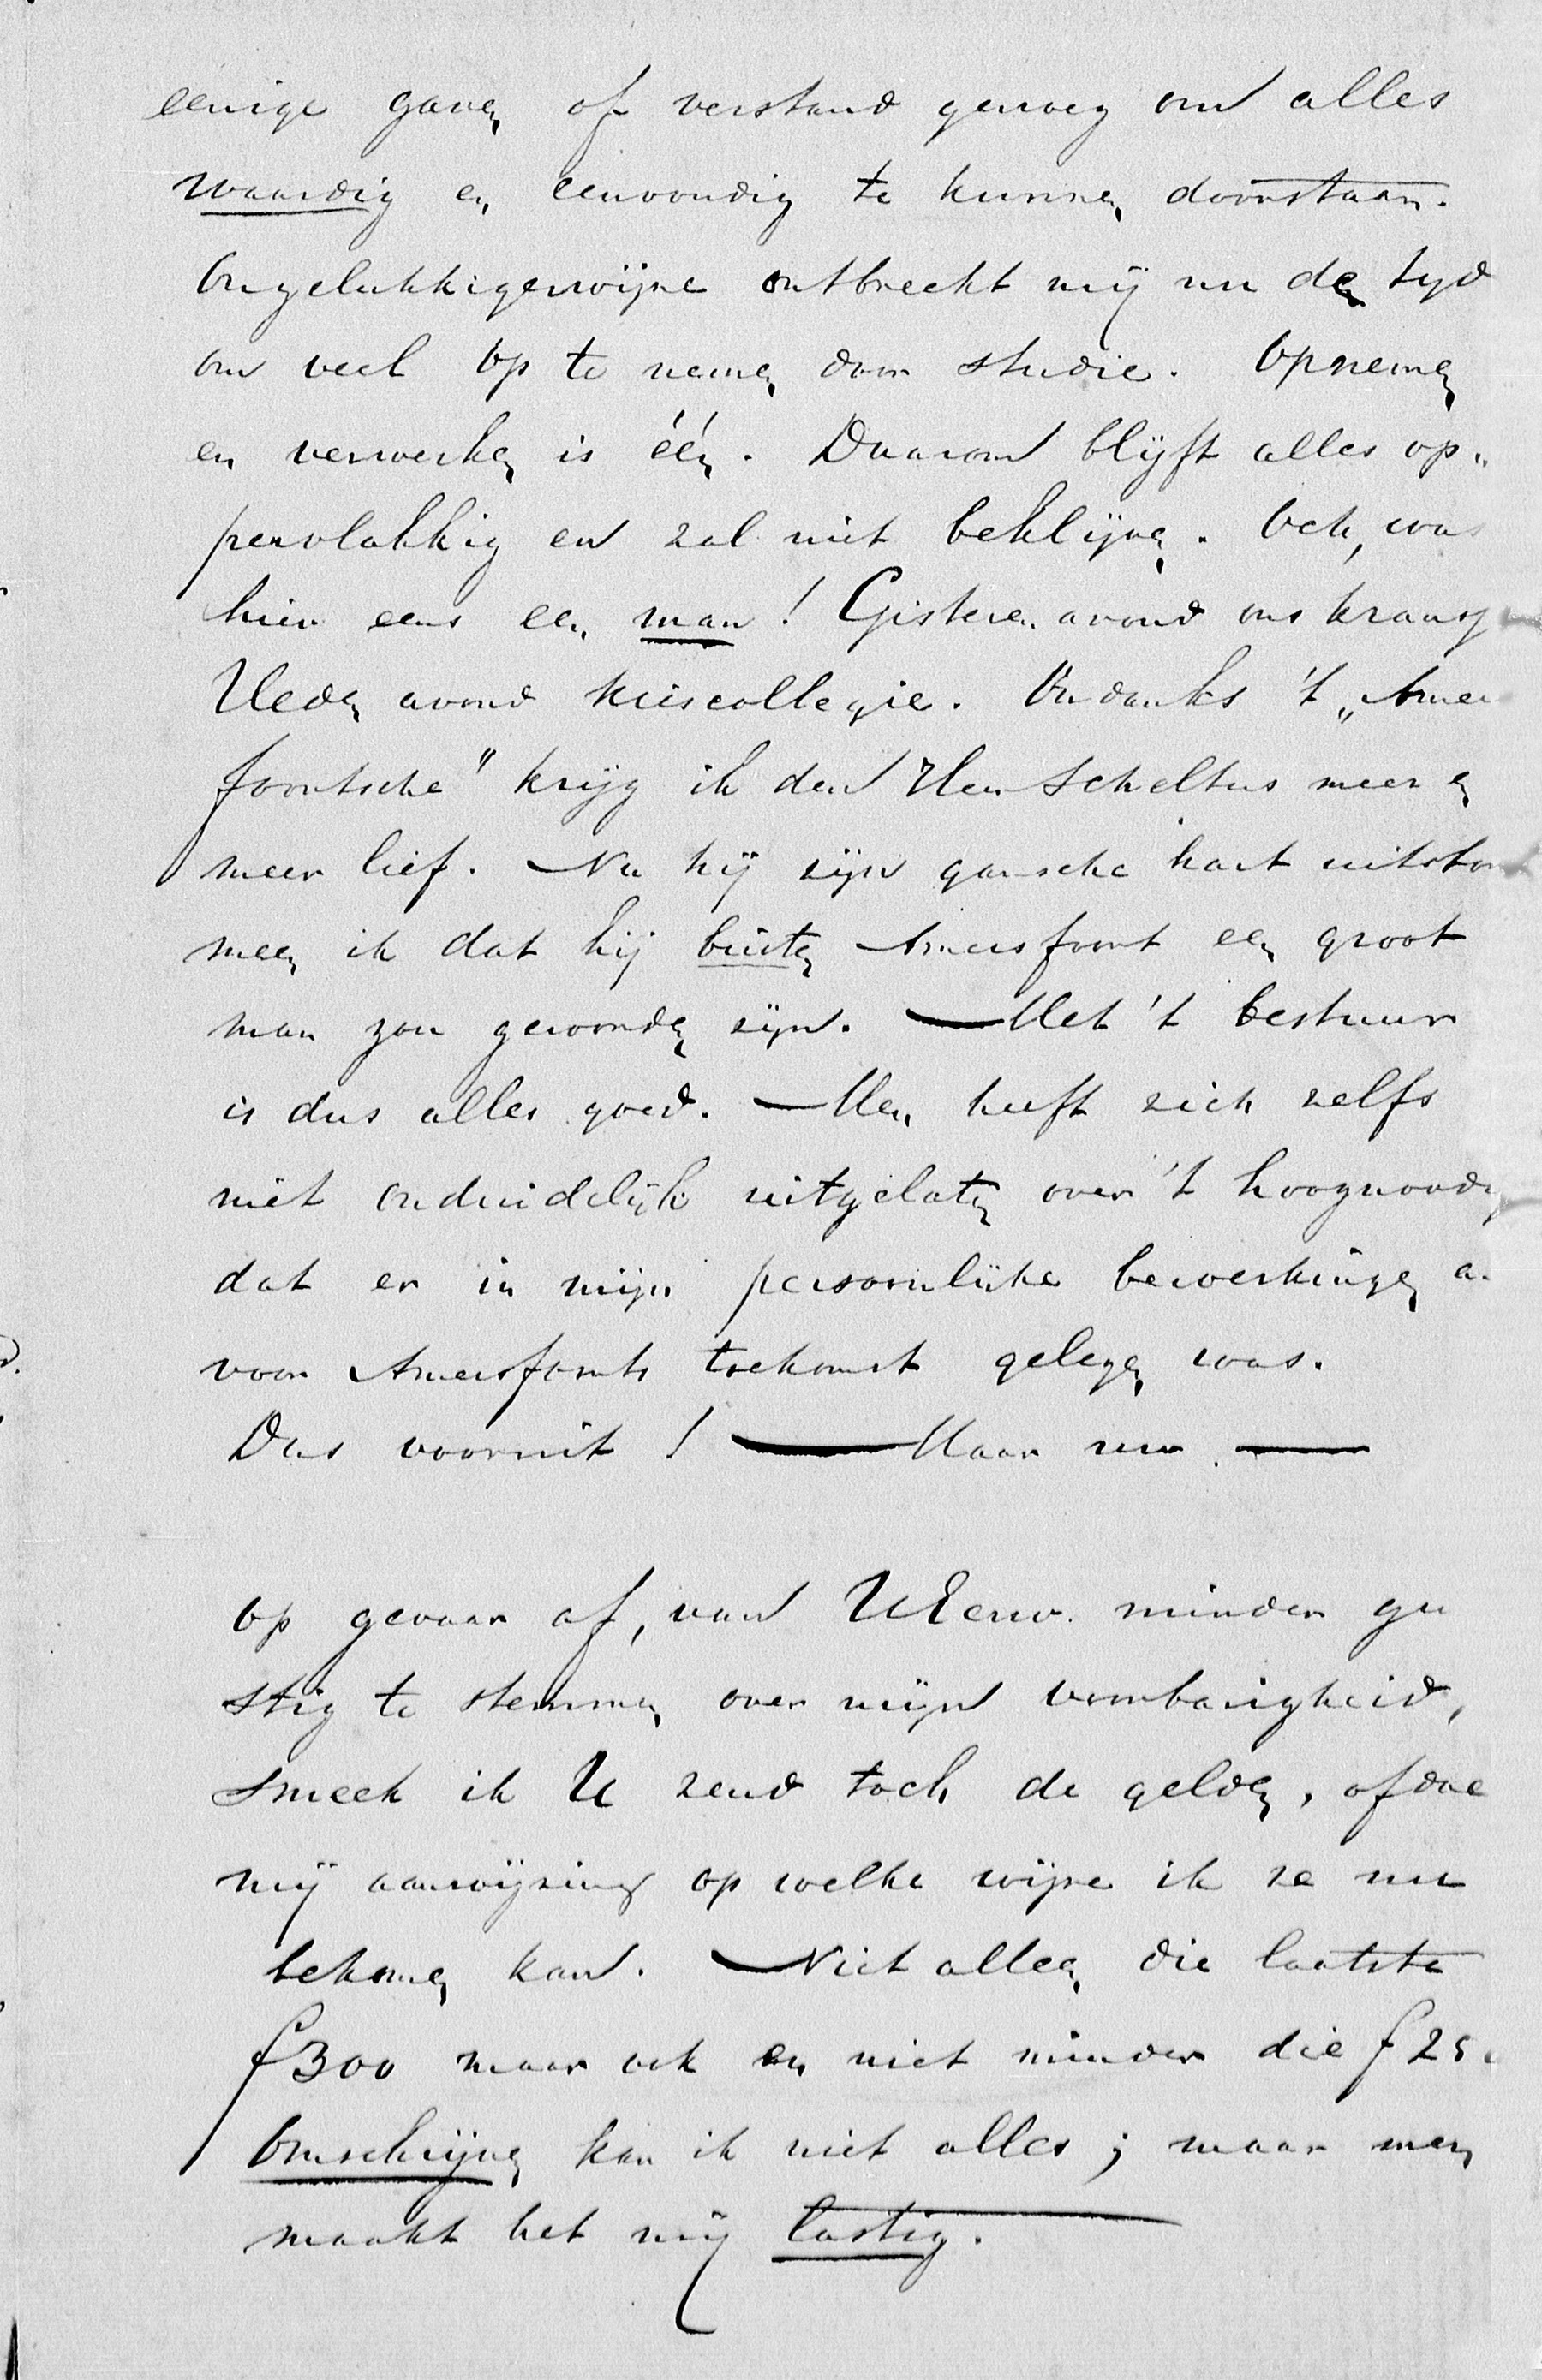 eenige gaven of verstand genoeg om alles
waardig en eenvoudig te kunnen doorstaan.
Ongelukkigerwijze ontbreekt mij nu de tyd
om veel op te nemen door studie. Opnemen
en verwerken is één. Daarom blijft alles op„
pervlakkig en zal niet beklijven. Och, was
hier eens een man! Gisteren avond ons kransj
Heden avond kiescollegie. Ondanks 't „Amers
foortsche" krijg ik den Heer Scheltus meer en
meer lief. Nu hij zijn gansche hart uitstort
meen ik dat hij buiten Amersfoort een groot
man zou geworden zijn. — Met 't bestuur
is dus alles goed. — Men heeft zich zelfs
niet onduidelijk uitgelaten over 't hoognoodig
dat er in mijn persoonlijke bewerkingen
voor Amersfoorts toekomst gelegen was.
Dus vooruit! — Maar nu. —
op gevaar af, van UEerw. minder gun
stig te stemmen over mijn voorbarigheid,
smeek ik U zend toch de gelden, of doe
mij aanwijzing op welke wijze ik ze nu
bekomen kan. — Niet alleen die laatste
f 300 maar ook en niet minder die f 25
Omschrijven kan ik niet alles; maar men
maakt het mij lastig.